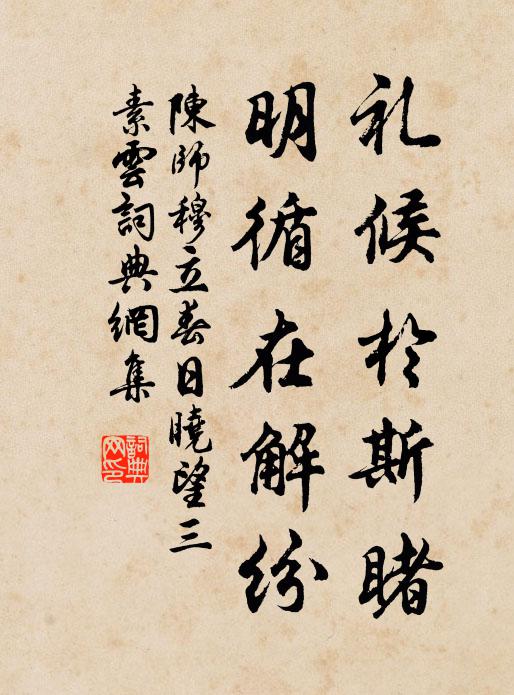 礼候於斯睹
明循在解紛
陳師穆立春日曉望三
素雲詞典網集
詞典網印